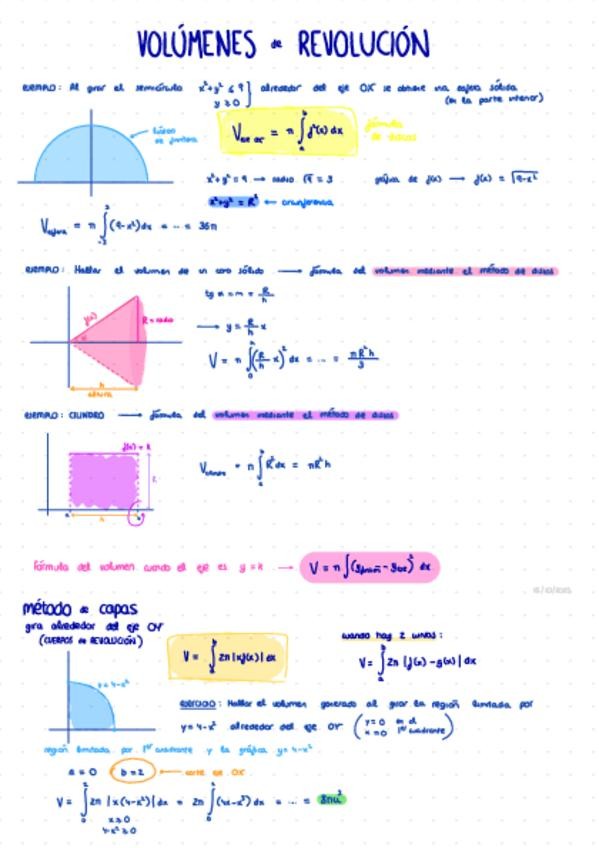 VOLÚMENES de REVOLUCIÓN
EJEMPLO: Al girar el semicírculo x²+y² ≤ 9 } alrededor del eje OX se obtiene una esfera sólida
y ≥ 0
(en la parte interior)
V eje OX = π ∫ₐᵇ f²(x) dx
fórmula de discos
x²+y² = 9 → radio √9 = 3
gráfica de f(x) → f(x) = √9-x²
x²+y² = R² ← circunferencia
V esfera = π ∫₋₃³ (9-x²) dx = ... = 36π
EJEMPLO: Hallar el volumen de un cono sólido → fórmula del volumen mediante el método de discos
f(x)
R = radio
h
altura
tg α = m = R/h
→ y = R/h x
V = π ∫₀ʰ (R/h x)² dx = ... = πR²h/3
EJEMPLO: CILINDRO → fórmula del volumen mediante el método de discos
f(x) = R
a
h
V cilindro = π ∫ₐᵇ R² dx = πR²h
Fórmula del volumen cuando el eje es y = k → V = π ∫ (        )² dx
método de capas
gira alrededor del eje OY
(CUERPOS de REVOLUCIÓN)
V = ∫ₐᵇ 2π |xf(x)| dx
cuando hay 2 curvas:
V = ∫ₐᵇ 2π |f(x) - g(x)| dx
y = 4-x²
EJERCICIO: Hallar el volumen generado al girar la región limitada por
y = 4-x² alrededor del eje OY (y=0 en el
x=0 1er cuadrante)
región limitada por 1er cuadrante y la gráfica y = 4-x²
a = 0 b = 2 ← corte eje OX
V = ∫₀² 2π |x(4-x²)| dx = 2π ∫₀² (4x-x³) dx = ... = 8πu³
x ≥ 0
4-x² ≥ 0